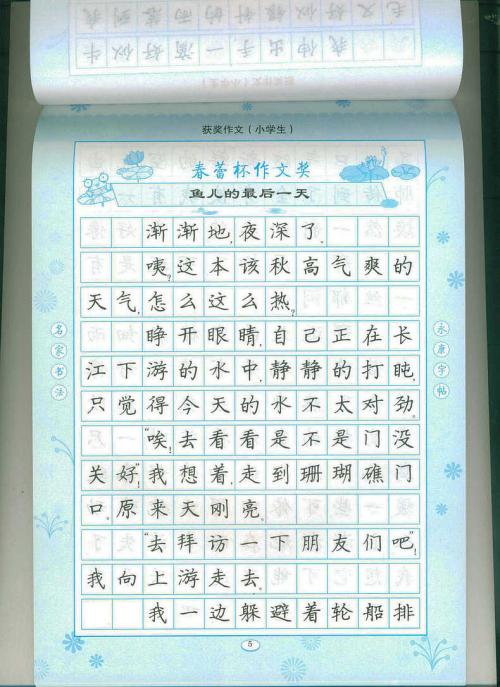 获奖作文(小学生)
春蕾杯作文奖
鱼儿的最后一天
渐渐地,夜深了。
咦?这本该秋高气爽的
天气,怎么这么热?
睁开眼睛,自己正在长
江下游的水中,静静的打盹,
只觉得今天的水不太对劲。
“唉!去看看是不是门没
关好”!我想着,走到珊瑚礁门
口。原来天刚亮。
“去拜访一下朋友们吧”!
我向上游走去。
我一边躲避着轮船排
名家书法
永康字帖
5